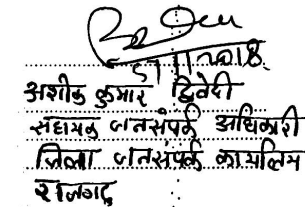 अशोक कुमार द्विवेदी
सहायक जनसंपर्क अधिकारी
जिला जनसंपर्क कार्यालय
राजगढ़